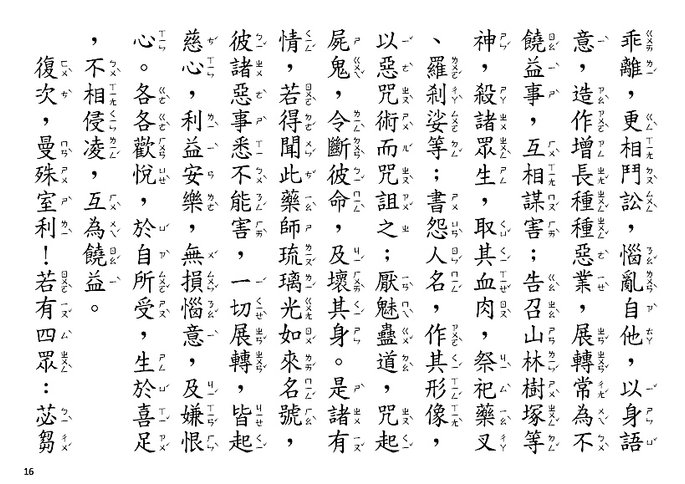 乖離，更相鬥訟，惱亂自他，以身語
意，造作增長種種惡業，展轉常為不
饒益事，互相謀害；告召山林樹塚等
神，殺諸眾生，取其血肉，祭祀藥叉
、羅剎娑等；書怨人名，作其形像，
以惡咒術而咒詛之；厭魅蠱道，咒起
屍鬼，令斷彼命，及壞其身。是諸有
情，若得聞此藥師琉璃光如來名號，
彼諸惡事悉不能害，一切展轉，皆起
慈心，利益安樂，無損惱意，及嫌恨
心。各各歡悅，於自所受，生於喜足
，不相侵凌，互為饒益。
復次，曼殊室利！若有四眾：苾芻
16